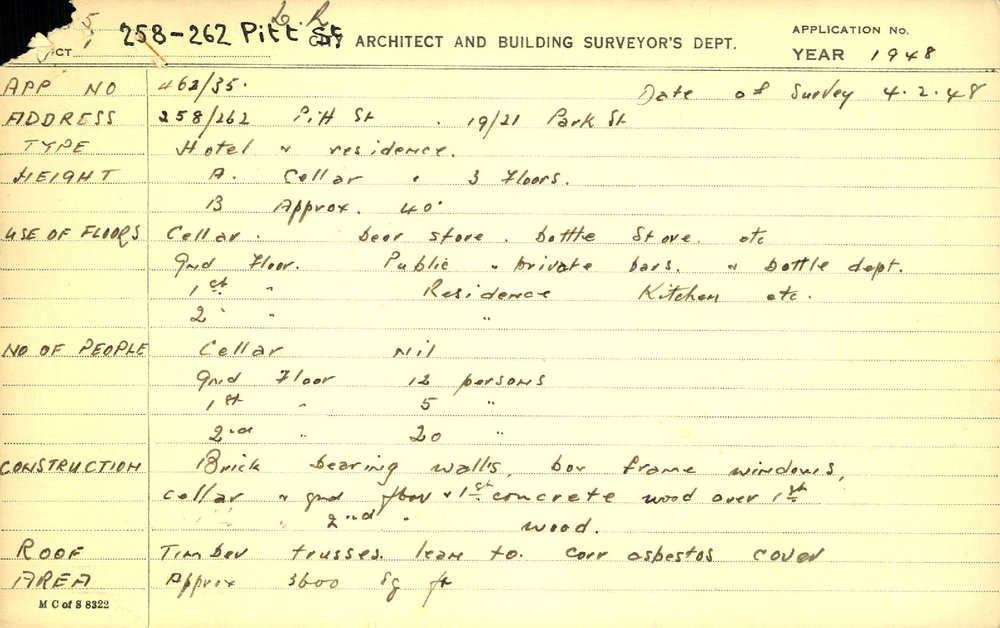 5 L.R
258-262 Pitt St CITY ARCHITECT AND BUILDING SURVEYOR'S DEPT. APPLICATION No.
CT YEAR 1948
APP NO 462/35. Date of Survey 4.2.48
ADDRESS 258/262 Pitt St . 19/21 Park St
TYPE Hotel & residence.
HEIGHT A. Cellar & 3 Floors.
B Approx. 40'
USE OF FLOORS Cellar. beer store. bottle Store. etc
Gnd Floor. Public & private bars. & bottle dept.
1st " Residence Kitchen etc.
2 " "
NO OF PEOPLE Cellar Nil
Gnd Floor 12 persons
1st " 5 "
2nd " 20 "
CONSTRUCTION Brick bearing walls, box frame windows,
Cellar & gnd floor & 1st concrete wood over 1st
2nd " wood.
ROOF Timber trusses. lean to. corr asbestos cover
AREA Approx 3600 Sq ft
M C of S 8322